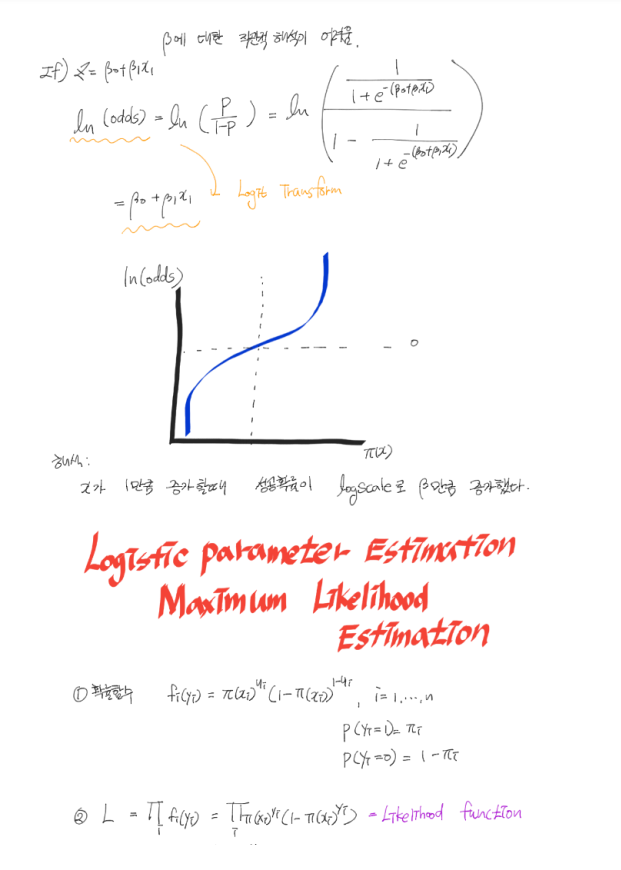 β에 대한 직관적 해석이 어려움.
If) z = β₀+β₁x₁
ln(odds) = ln(p/(1-p)) = ln((1/(1+e^-(β₀+β₁x₁)))/(1 - 1/(1+e^-(β₀+β₁x₁))))
= β₀+β₁x₁ Logit Transform
ln(odds)
0
π(x)
해석:
x가 1만큼 증가할때 성공확률이 logscale로 β만큼 증가했다.
Logistic parameter Estimation
Maximum Likelihood
Estimation
① 확률함수 fᵢ(yᵢ) = π(xᵢ)^yᵢ (1-π(xᵢ))^1-yᵢ, i=1,...,n
P(yᵢ=1) = πᵢ
P(yᵢ=0) = 1-πᵢ
② L = ∏ᵢ fᵢ(yᵢ) = ∏ᵢ π(xᵢ)^yᵢ (1-π(xᵢ)^yᵢ) = Likelihood function